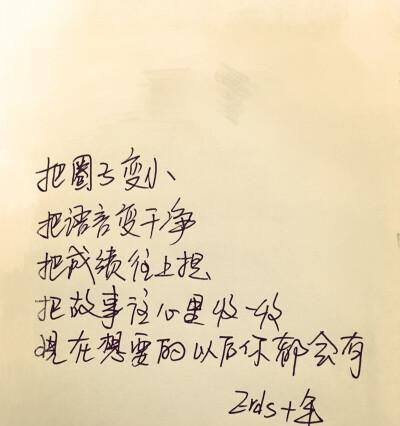 把圈子变小
把语言变干净
把成绩往上提
把故事往心里收一收
现在想要的以后你都会有